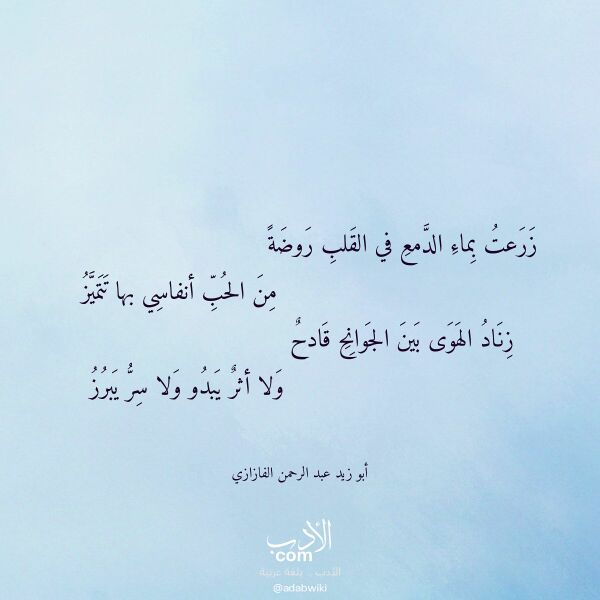 زَرَعتُ بِماءِ الدَّمعِ في القَلبِ رَوضَةً
مِنَ الحُبِّ أنفاسِي بها تَتَميَّزُ
زِنَادُ الهَوَى بَينَ الجَوانِحِ قَادحٌ
وَلا أثرٌ يَبدُو وَلا سِرٌّ يَبرُزُ
أبو زيد عبد الرحمن الفازازي
الأدب
com
الأدب .. بلغة عربية
@adabwiki